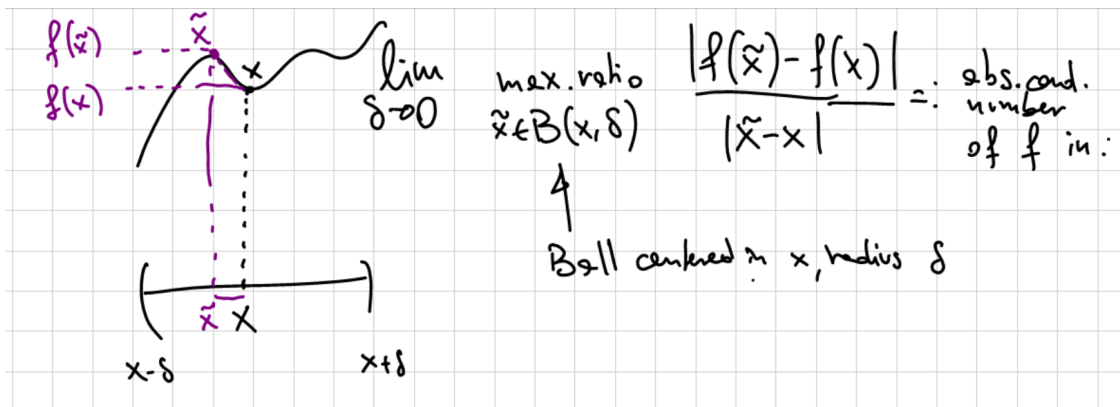 f(x̃)
f(x)
x̃
x
lim
δ→0
max. ratio
x̃∈B(x, δ)
|f(x̃)-f(x)|
|x̃-x|
=: abs. cond.
number
of f in:
Ball centered in x, radius δ
x̃ x
x-δ
x+δ